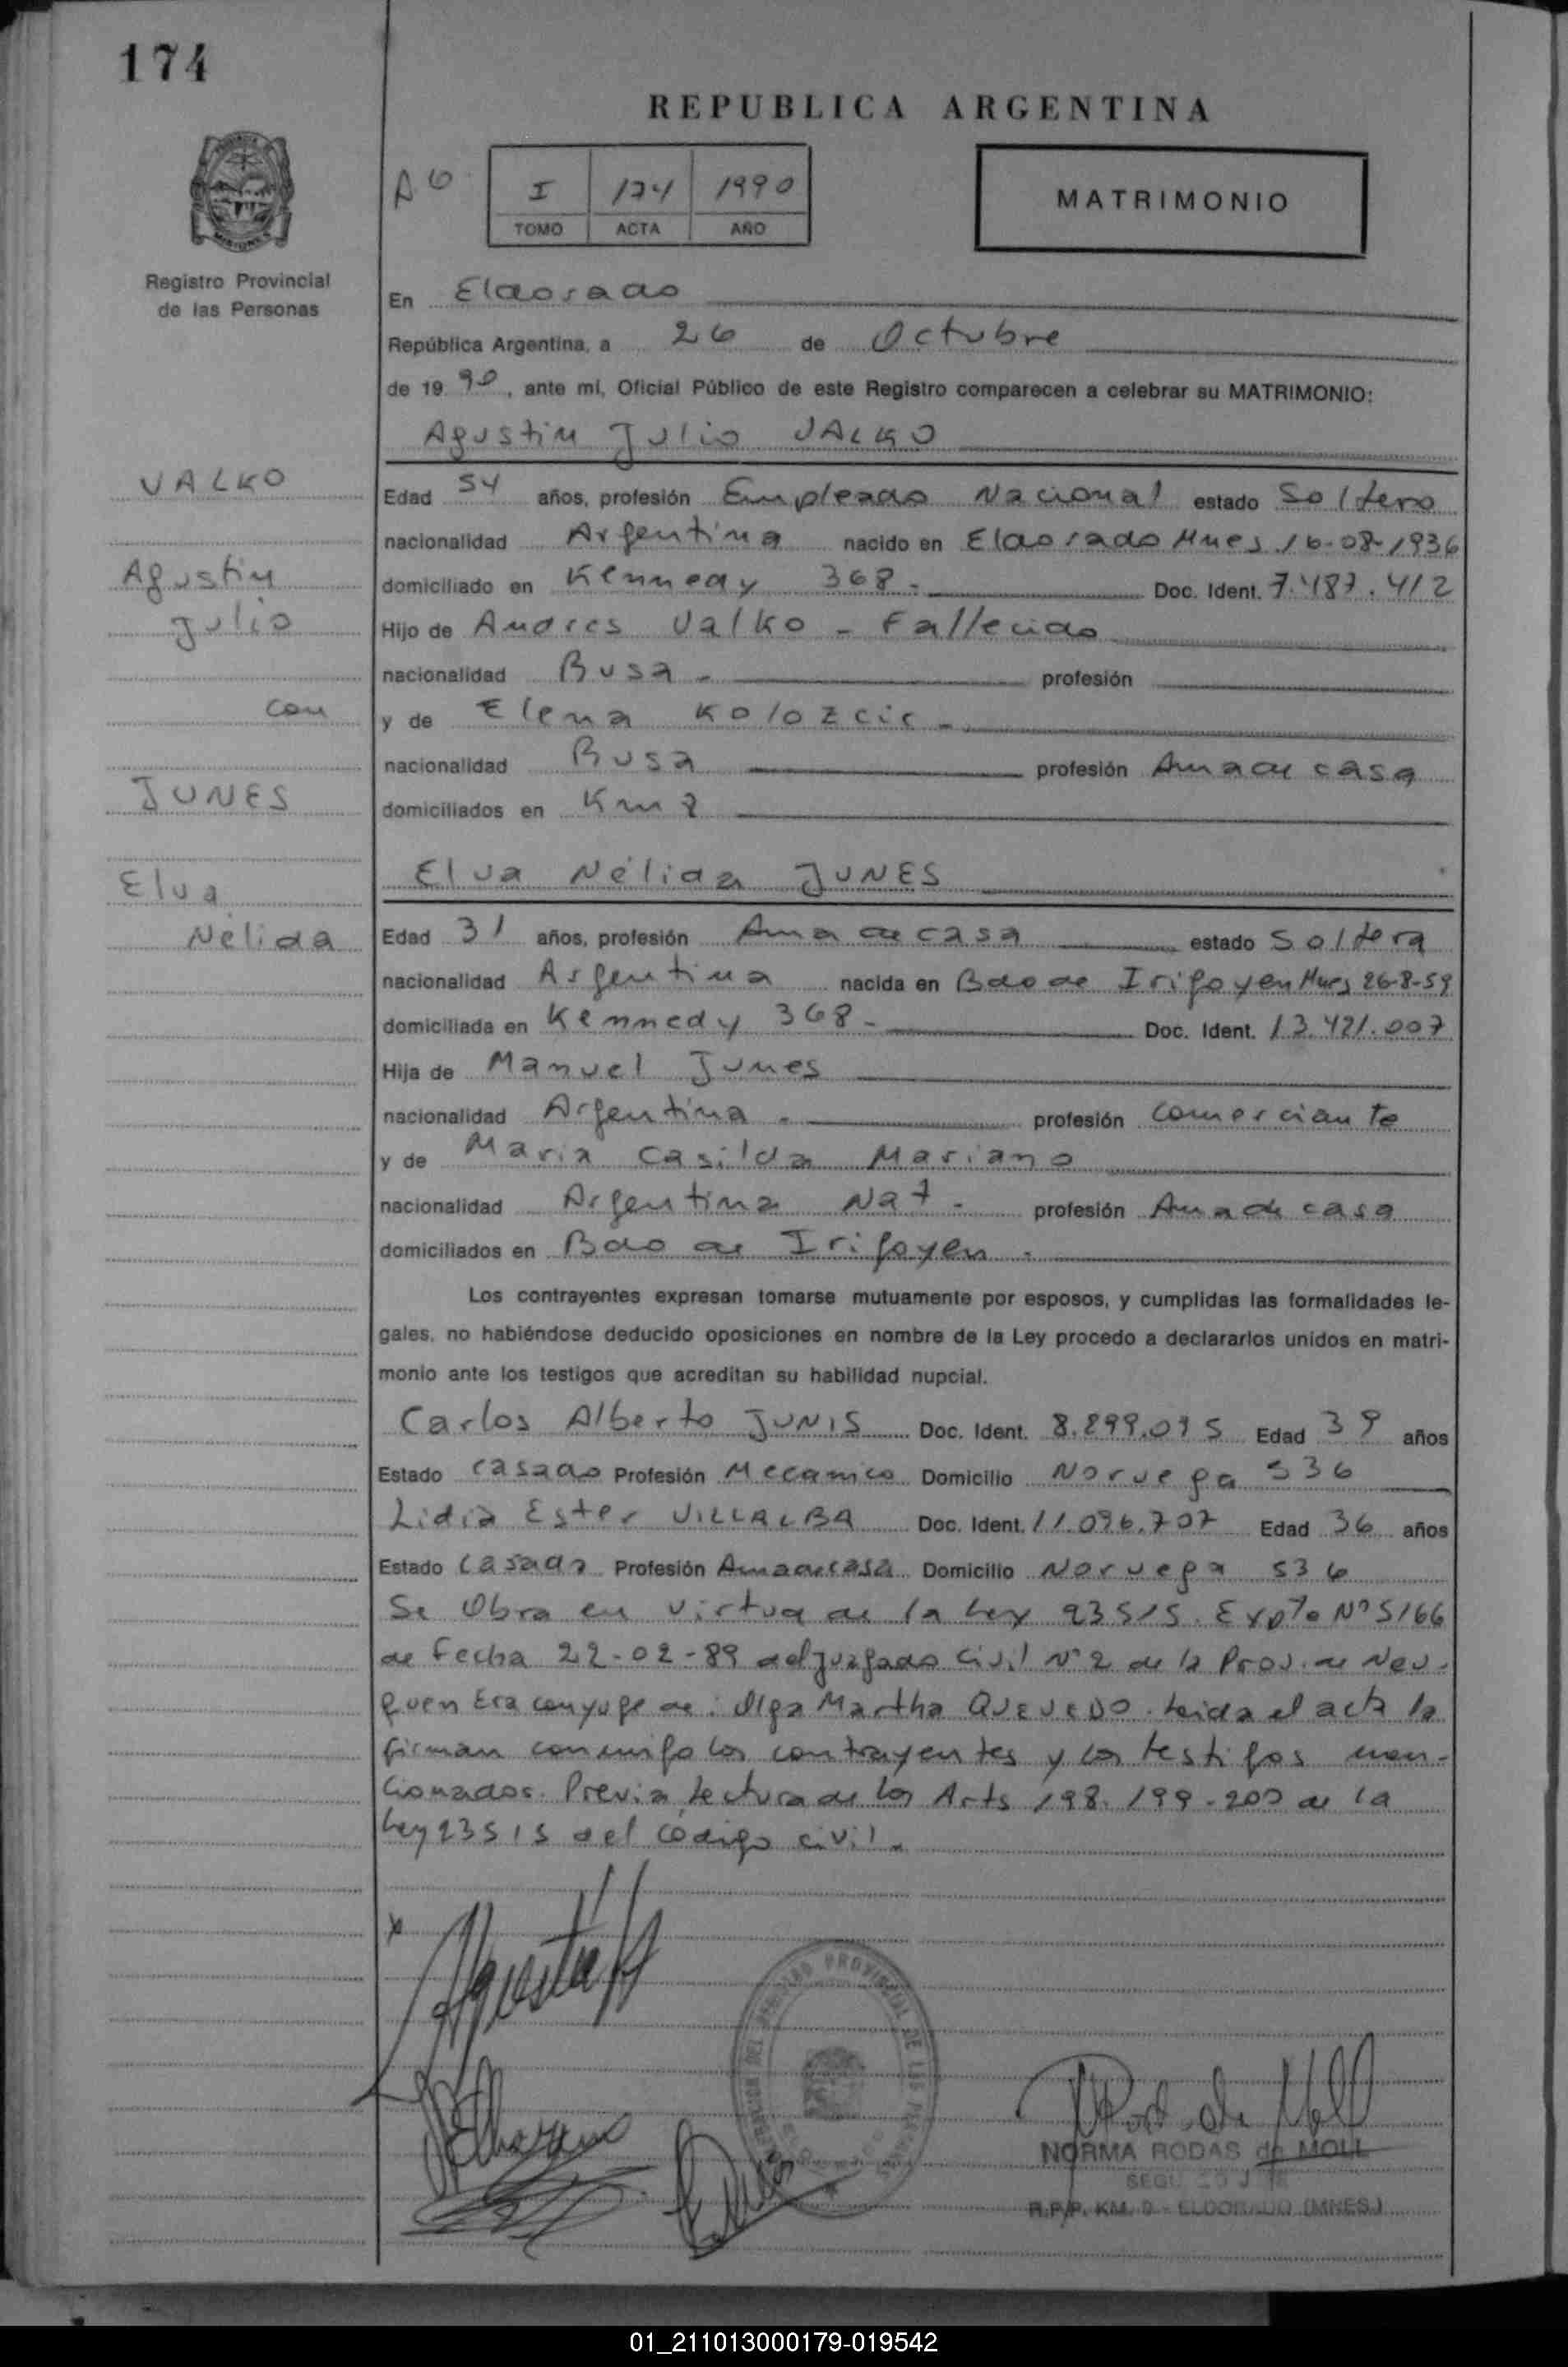 174
REPUBLICA ARGENTINA
A6
I 174 1990
TOMO ACTA AÑO
MATRIMONIO
MISIONES
Registro Provincial
de las Personas
En Eldorado
República Argentina, a 26 de Octubre
de 19 90, ante mí, Oficial Público de este Registro comparecen a celebrar su MATRIMONIO:
Agustin Julio VALKO
VALKO
Agustin
Julio
con
JUNES
Elva
Nélida
Edad 54 años, profesión Empleado Nacional estado Soltero
nacionalidad Argentina nacido en Eldorado Mnes 16-08-1936
domiciliado en Kennedy 368 - Doc. Ident. 7.487.412
Hijo de Andres Valko - Fallecido
nacionalidad Rusa - profesión
y de Elena Kolozcic -
nacionalidad Rusa profesión Ama de casa
domiciliados en Km 8
Elva Nélida JUNES
Edad 31 años, profesión Ama de casa estado Soltera
nacionalidad Argentina nacida en Bdo de Irigoyen Mnes 26-8-59
domiciliada en Kennedy 368 - Doc. Ident. 13.421.007
Hija de Manuel Junes
nacionalidad Argentina - profesión comerciante
y de Maria Casilda Mariano
nacionalidad Argentina Nat - profesión Ama de casa
domiciliados en Bdo de Irigoyen -
Los contrayentes expresan tomarse mutuamente por esposos, y cumplidas las formalidades le-
gales, no habiéndose deducido oposiciones en nombre de la Ley procedo a declararlos unidos en matri-
monio ante los testigos que acreditan su habilidad nupcial.
Carlos Alberto JUNIS Doc. Ident. 8.899.075 Edad 39 años
Estado casado Profesión Mecanico Domicilio Noruega 536
Lidia Ester VILLALBA Doc. Ident. 11.096.707 Edad 36 años
Estado casada Profesión Ama de casa Domicilio Noruega 536
Se Obra en virtud de la Ley 23515. Expte Nº 5166
de Fecha 22-02-89 del Juzgado Civil Nº 2 de la Prov. de Neu-
quen Era conyuge de: Olga Martha QUEVEDO. Leida el acta la
firman conmigo los contrayentes y los testigos men-
cionados. Previa Lectura de los Arts 198. 199-200 de la
Ley 23515 del codigo civil.
NORMA RODAS de MOLL
R.P.P. KM. 9 - ELDORADO (MNES.)
01_211013000179-019542